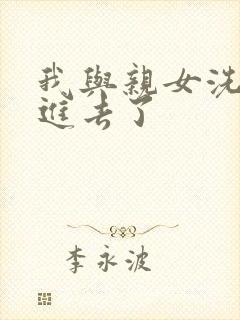 我與親女洗
進去了
李永波